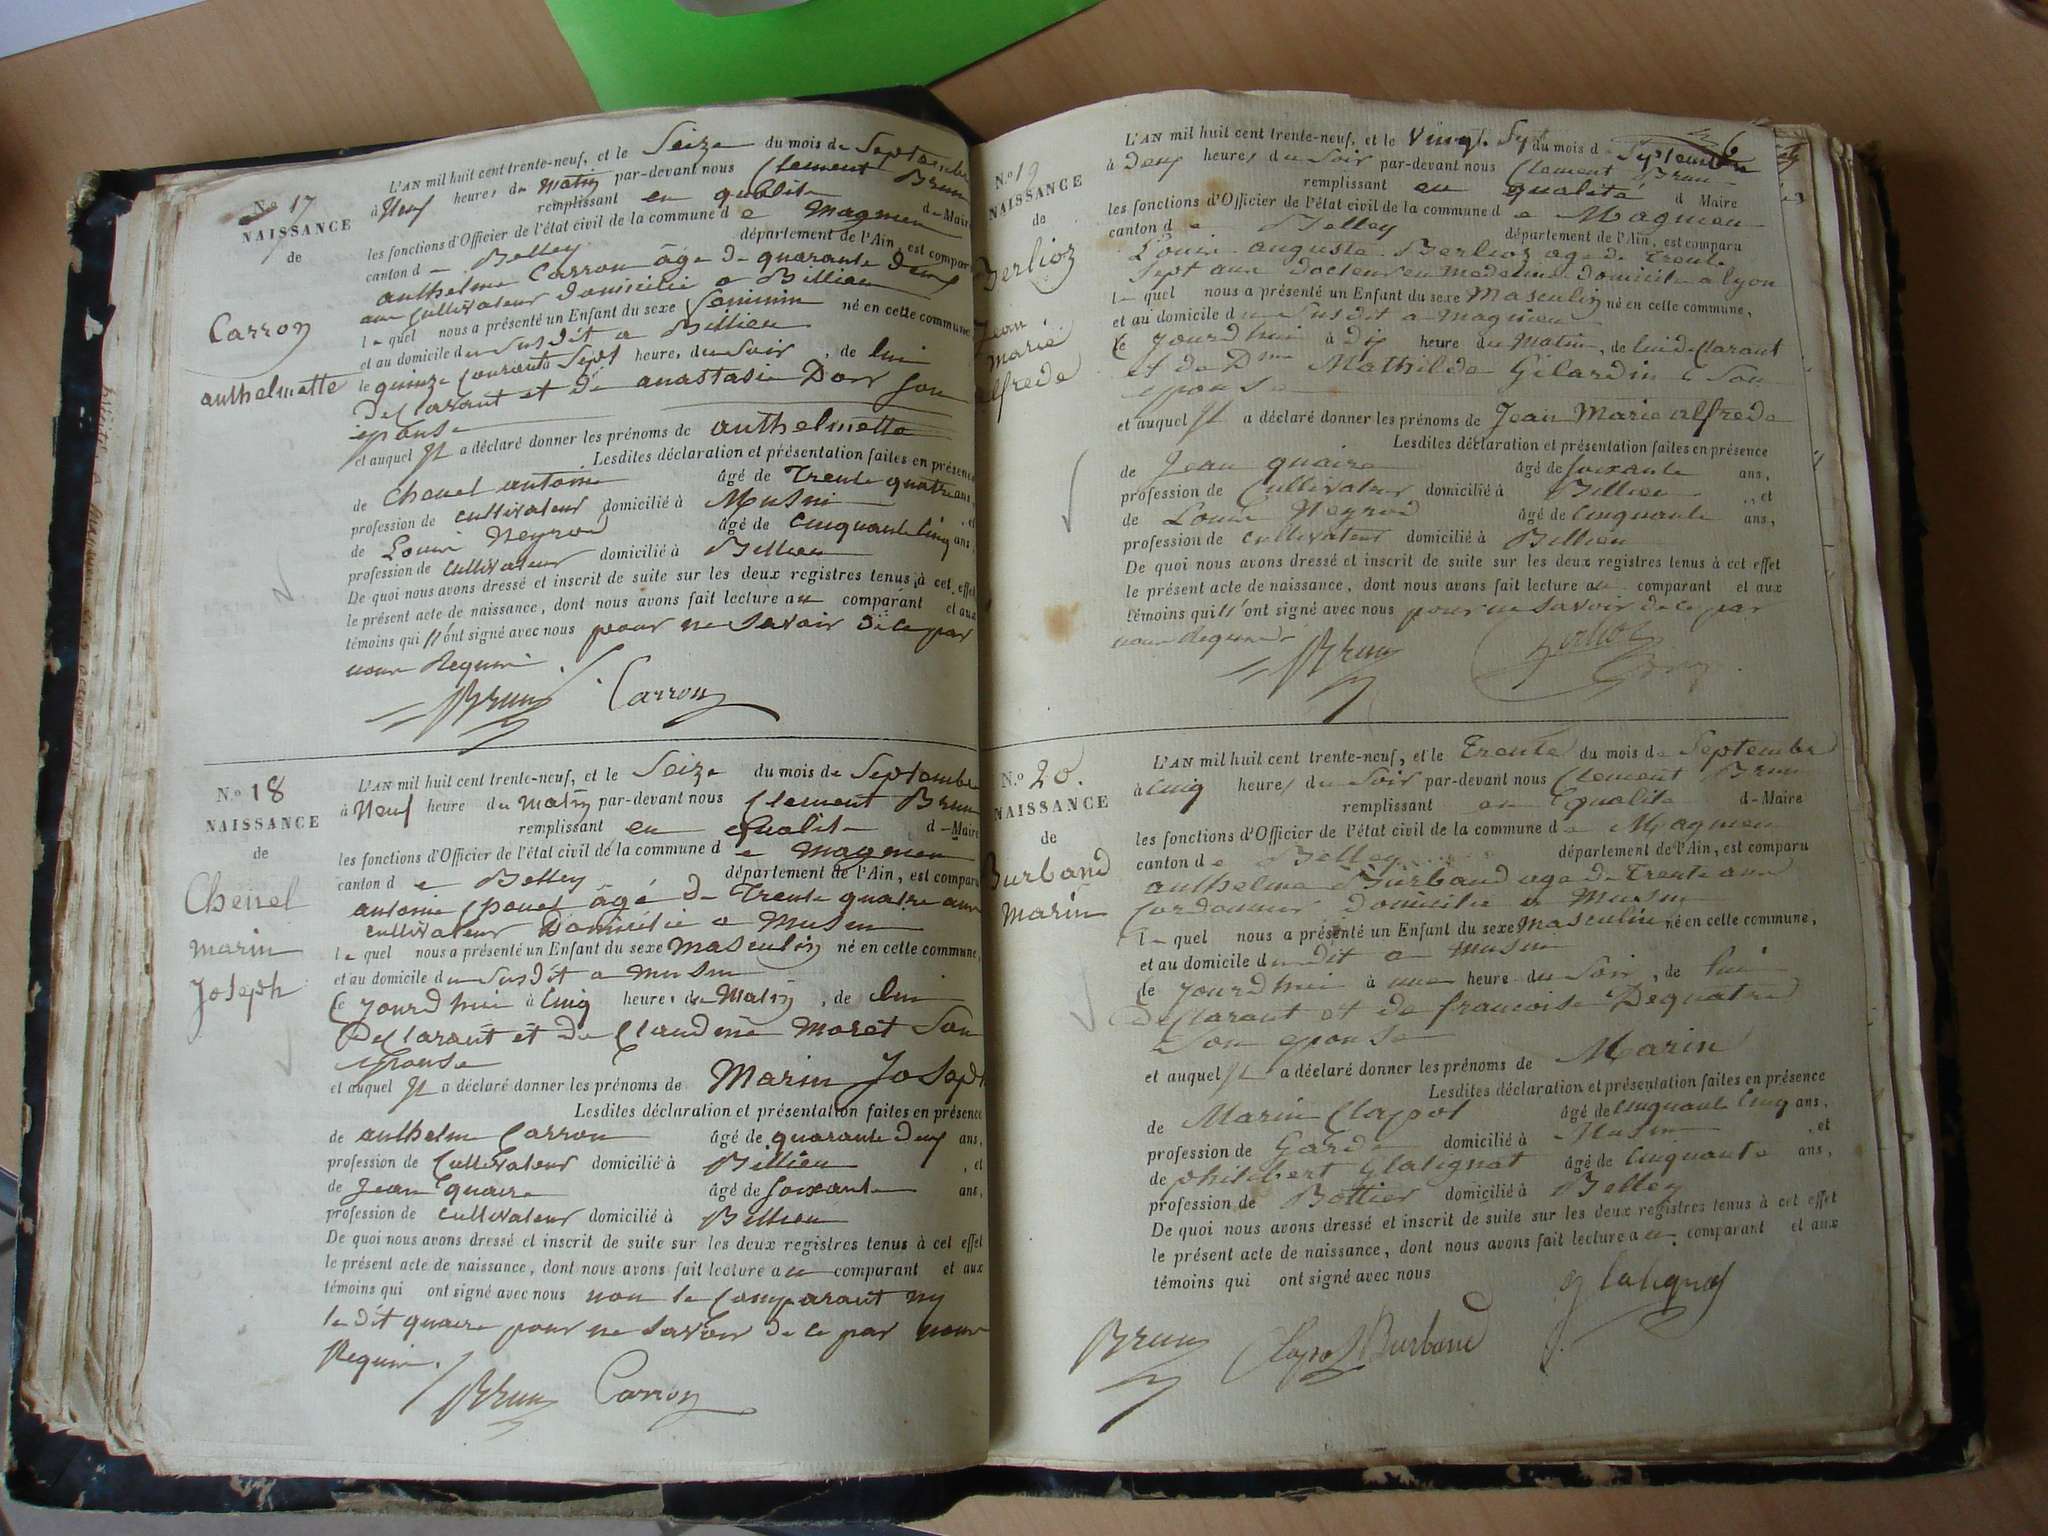 No 17
NAISSANCE
de
Carron
anthelmette
L'AN mil huit cent trente-neuf, et le Seize du mois de Septembre
à Neuf heures du Matin par-devant nous Clement Brun
remplissant en qualité de Maire
les fonctions d'Officier de l'état civil de la commune de Magnieu
canton de Belley département de l'Ain, est comparu
anthelme Carron âgé de quarante deux
ans Cultivateur domicilié a Billieu
lequel nous a présenté un Enfant du sexe feminin né en cette commune
et au domicile du susdit a Billieu
le quinze Courant a Sept heures du Soir, de lui
Declarant et de anastasie Dor son
epouse
et auquel Il a déclaré donner les prénoms de anthelmette
Lesdites déclaration et présentation faites en présence
de Chenel antoine âgé de Trente quatre ans
profession de cultivateur domicilié à Musin, et
de Louis Neyrod âgé de Cinquante Cinq ans,
profession de cultivateur domicilié à Billieu
De quoi nous avons dressé et inscrit de suite sur les deux registres tenus à cet effet
le présent acte de naissance, dont nous avons fait lecture au comparant et aux
témoins qui n'ont signé avec nous pour ne savoir de ce par
nous Requis.
Brun Carron
No 18
NAISSANCE
de
Chenel
marin
Joseph
L'AN mil huit cent trente-neuf, et le Seize du mois de Septembre
à Neuf heure du Matin par-devant nous Clement Brun
remplissant en qualité de Maire
les fonctions d'Officier de l'état civil de la commune de Magnieu
canton de Belley département de l'Ain, est comparu
antoine Chenel âgé de Trente quatre ans
cultivateur Domicilié a Musin
lequel nous a présenté un Enfant du sexe Masculin né en cette commune,
et au domicile du susdit a Musin
Ce jourd'hui à Cinq heures du Matin, de lui
Declarant et de Claudine Moret Son
epouse
et auquel Il a déclaré donner les prénoms de Marin Joseph
Lesdites déclaration et présentation faites en présence
de anthelme Carron âgé de quarante deux ans,
profession de Cultivateur domicilié à Billieu, et
de Jean quaire âgé de soixante ans,
profession de cultivateur domicilié à Billieu
De quoi nous avons dressé et inscrit de suite sur les deux registres tenus à cet effet
le présent acte de naissance, dont nous avons fait lecture au comparant et aux
témoins qui ont signé avec nous non le Comparant ny
le dit quaire pour ne savoir de ce par nous
Requis.
Brun Carron
No 19
NAISSANCE
de
Berlioz
Jean
Marie
alfrede
L'AN mil huit cent trente-neuf, et le Vingt Sept du mois de Septembre
à Deux heures du Soir par-devant nous Clement Brun
remplissant en qualité de Maire
les fonctions d'Officier de l'état civil de la commune de Magnieu
canton de Belley département de l'Ain, est comparu
Louis auguste Berlioz age de Trente
Sept ans docteur en medecine domicilie a lyon
lequel nous a présenté un Enfant du sexe Masculin né en cette commune,
et au domicile du susdit a magnieu
Ce jourd'hui à dix heure du Matin, de lui declarant
et de Dme Mathilde Gilardin Son
epouse
et auquel Il a déclaré donner les prénoms de Jean Marie alfrede
Lesdites déclaration et présentation faites en présence
de Jean quaire âgé de soixante ans,
profession de Cultivateur domicilié à Billieu, et
de Louis Neyrod âgé de Cinquante ans,
profession de cultivateur domicilié à Billieu
De quoi nous avons dressé et inscrit de suite sur les deux registres tenus à cet effet
le présent acte de naissance, dont nous avons fait lecture au comparant et aux
témoins qui n'ont signé avec nous pour ne savoir de ce par
nous Requis
Brun Berlioz
No 20.
NAISSANCE
de
Burband
Marin
L'AN mil huit cent trente-neuf, et le Trente du mois de Septembre
à Cinq heures du Soir par-devant nous Clement Brun
remplissant en qualite de Maire
les fonctions d'Officier de l'état civil de la commune de Magnieu
canton de Belley département de l'Ain, est comparu
anthelme Burband age de Trente ans
Cordonnier domicilie a Musin
lequel nous a présenté un Enfant du sexe Masculin né en cette commune,
et au domicile du dit a Musin
Ce jourd'hui à une heure du Soir, de lui
declarant et de francoise Dequatre
Son epouse
et auquel Il a déclaré donner les prénoms de Marin
Lesdites déclaration et présentation faites en présence
de Marin Clapot âgé de Cinquante Cinq ans,
profession de Garde domicilié à Musin, et
de philibert Glatignat âgé de Cinquante ans,
profession de Bottier domicilié à Belley
De quoi nous avons dressé et inscrit de suite sur les deux registres tenus à cet effet
le présent acte de naissance, dont nous avons fait lecture au comparant et aux
témoins qui ont signé avec nous glatignat
Brun Clapot Burband